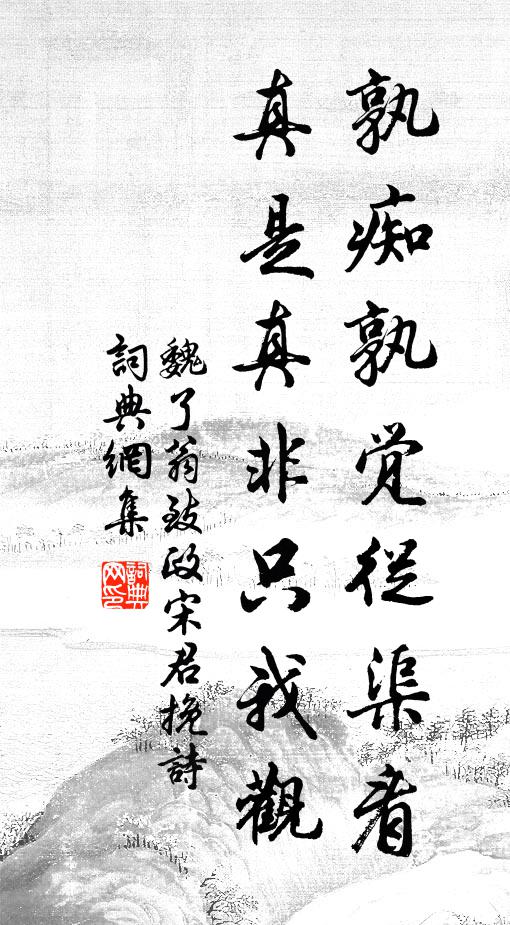 孰痴孰觉從渠看
真是真非只我觀
魏了翁致政宋君挽詩
詞典網集
詞典网印